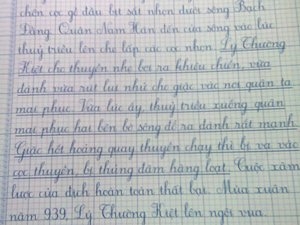 chôn cọc gỗ đầu bịt sắt nhọn dưới sông Bạch
Đằng. Quân Nam Hán đến cửa sông vào lúc
thuỷ triều lên che lấp các cọc nhọn. Lý Thường
Kiệt cho thuyền nhẹ bơi ra khiêu chiến, vừa
đánh vừa rút lui nhử cho giặc vào nơi quân ta
mai phục. Vừa lúc ấy, thuỷ triều xuống quân
mai phục hai bên bờ sông đổ ra đánh rất mạnh.
Giặc hốt hoảng quay thuyền chạy thì bị va vào
cọc thuyền, bị thủng đắm hàng loạt. Cuộc xâm
lược của địch hoàn toàn thất bại. Mùa xuân
năm 939, Lý Thường Kiệt lên ngôi vua.